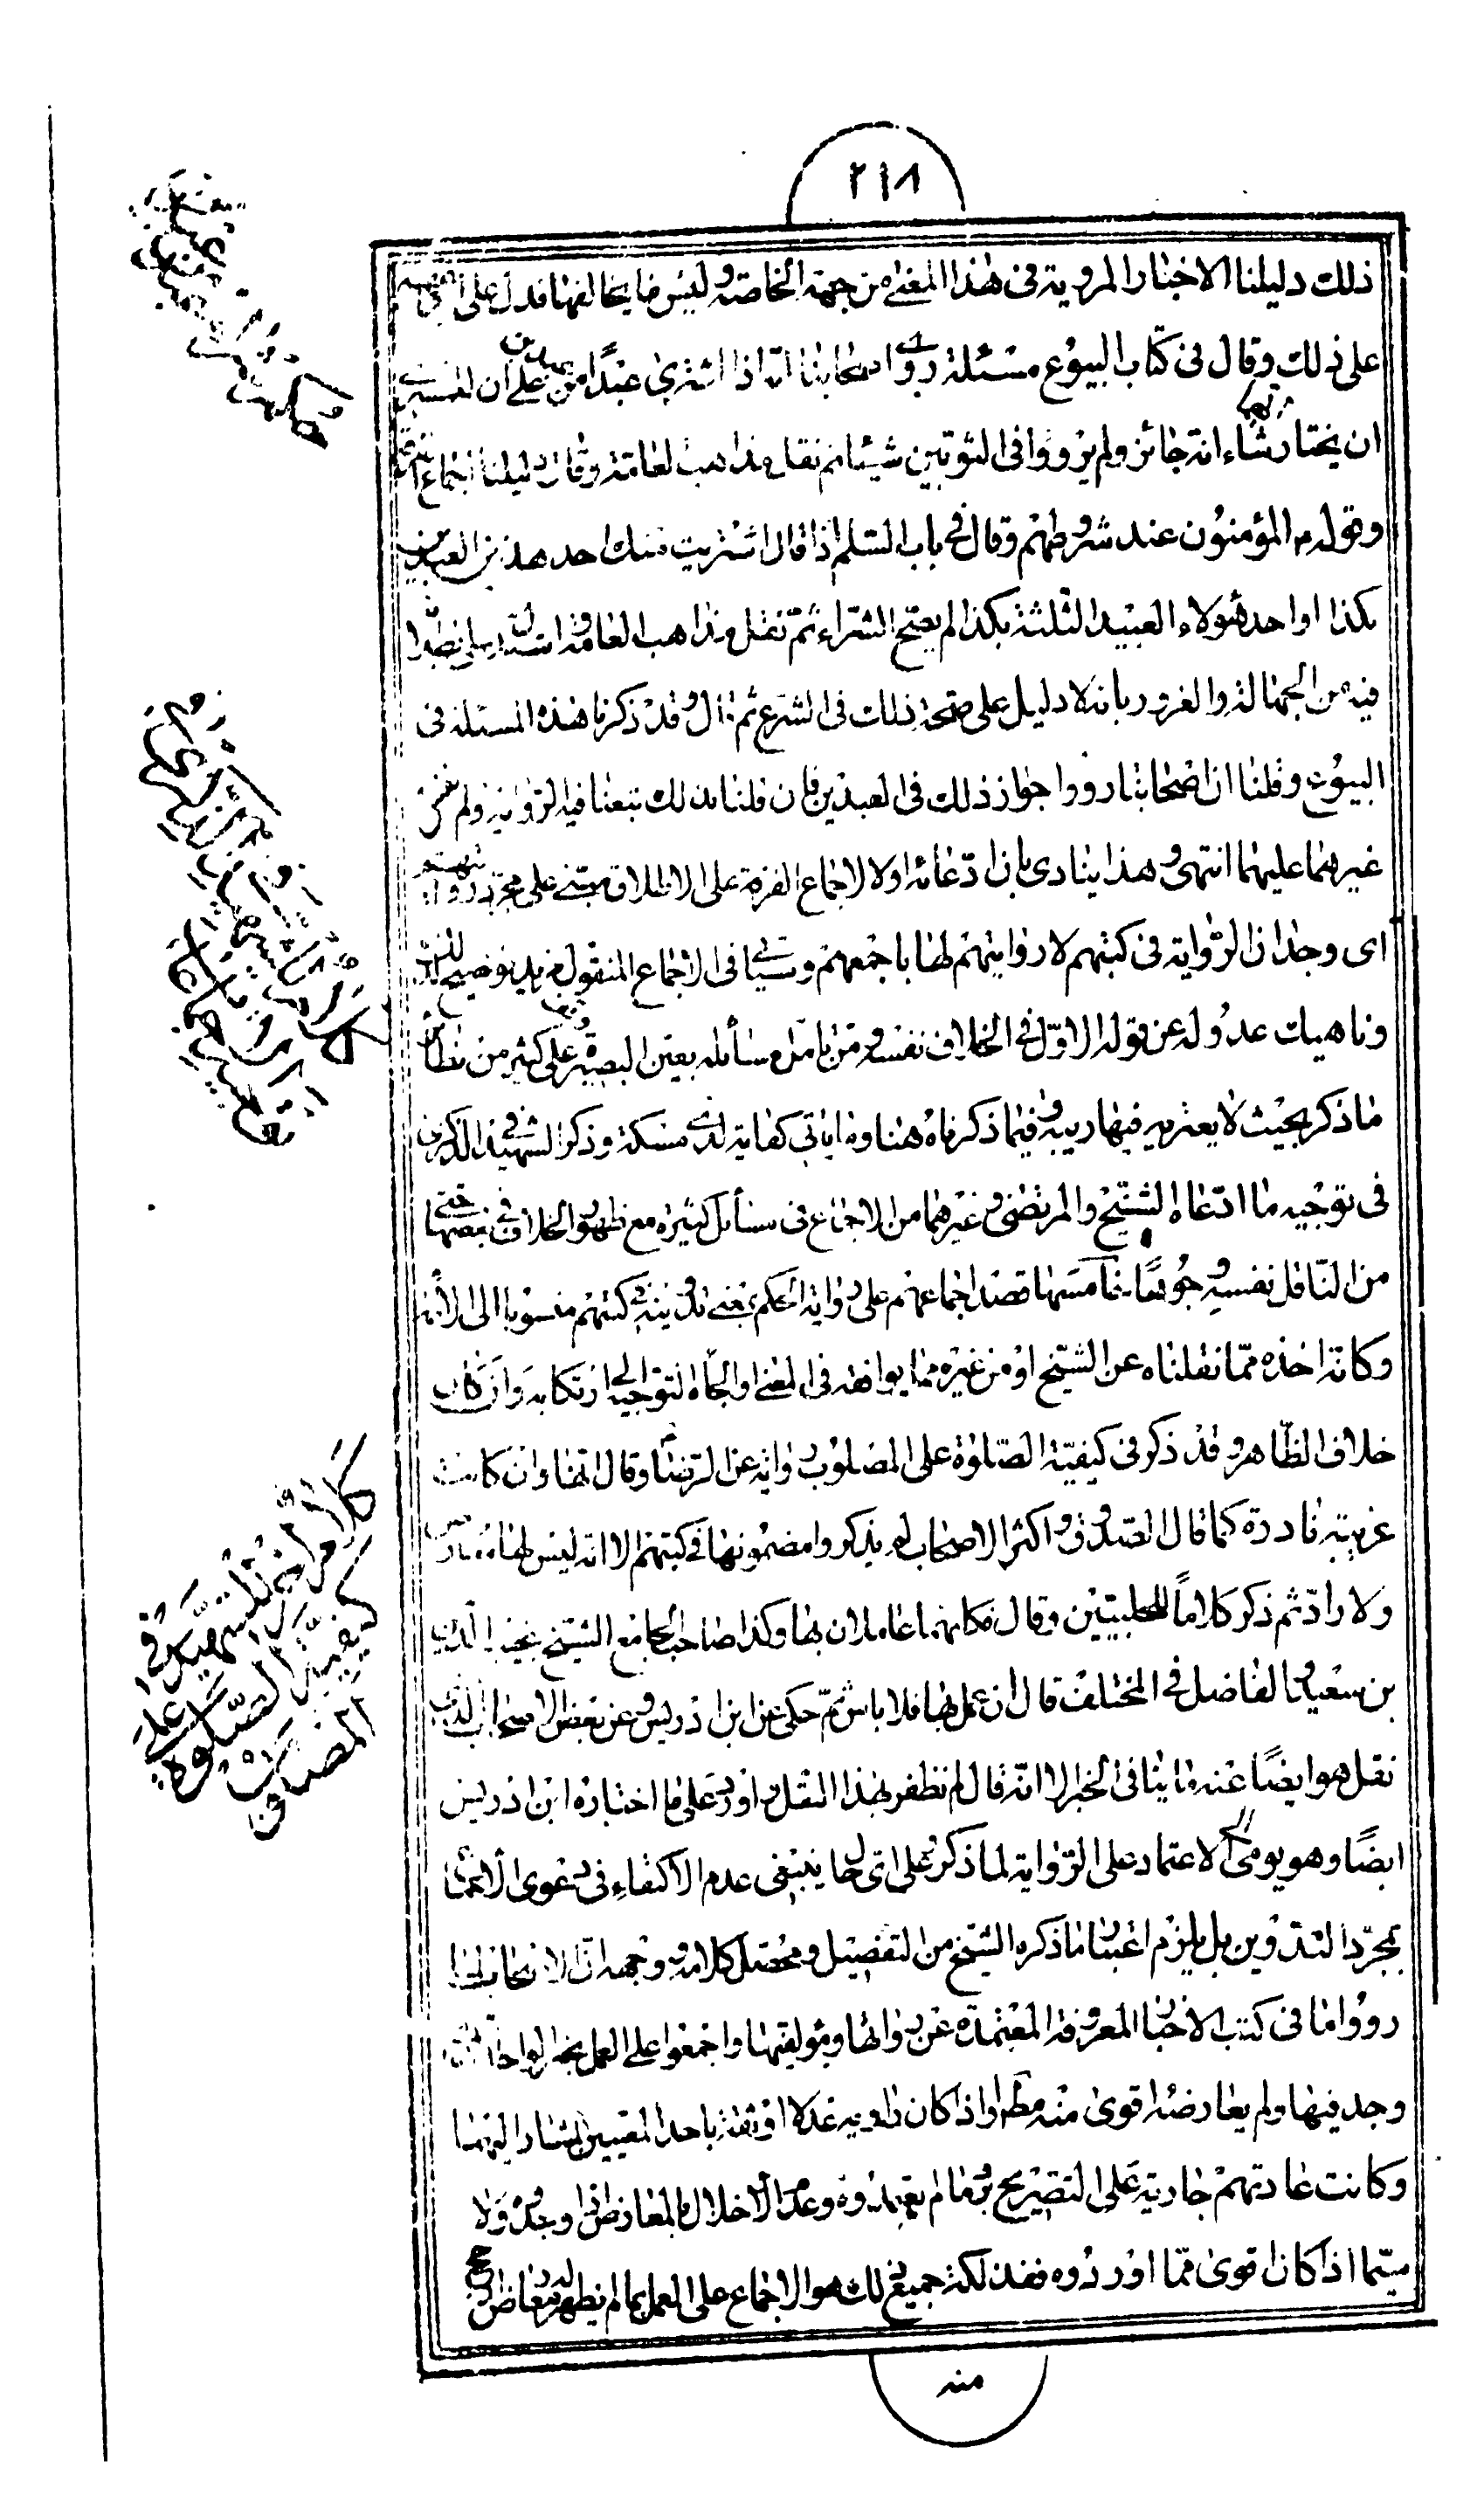 ٢١٨
ذلك دليلنا الاخبار المروية فى هذا المعنى من جهة الخاصة وليس ما يخالفها فدل على
على ذلك وقال فى كتاب البيوع مسئلة روى اصحابنا انه اذا اشترى عبدا من عبدين على ان للمشترى
ان يختار ايهما شاء انه جائز ولم يرووا فى الثوبين شيئا ثم نقل مذاهب العامة وقال دليلنا اجماع الفرقة
وقوله ص المؤمنون عند شروطهم وقال فى باب السلم اذا قال اشتريت منك احد هذين العبدين
بكذا او احد هؤلاء العبيد الثلثة بكذا لم يصح الشراء ثم نقل مذاهب العامة
فيه من الجهالة والغرر وبانه لا دليل على صحة ذلك فى الشرع ثم قال وقد ذكرنا هذه المسئلة فى
البيوع وقلنا ان اصحابنا رووا جواز ذلك فى العبدين فان قلنا بذلك تبعنا فيه الرواية ولم نقس
غيرهما عليهما انتهى وهذا ينادى بان ادعائه اولا لاجماع الفرقة على الاطلاق مبتنى على مجرد روايتهم
اى وجدان الرواية فى كتبهم لا روايتهم لها باجمعهم وسيأتى فى الاجماع المنقول مزيد توضيح لذلك
وناهيك عدوله عن قوله الاول فى الخلاف نفسه ومن تامل مسائله بعين البصيرة وقف على كثير من نظائر
ما ذكر بحيث لا يعتريه فيها ريبة وفيما ذكرناه هنا وما ياتى كفاية لذى مسكة وذكر الشهيد فى الذكرى
فى توجيه ما ادعاه الشيخ والمرتضى وغيرهما من الاجماع فى مسائل كثيرة مع ظهور الخلاف فى بعضها حتى
من الناقل نفسه وجوها خامسها قصد اجماعهم على رواية الحكم بمعنى تدوينه فى كتبهم منسوبا الى الائمة
وكانه اخذه مما نقلناه عن الشيخ او من غيره مما يوافقه فى المعنى او الجأه التوجيه الى ارتكابه وان كان
خلاف الظاهر وقد ذكر فى كيفية الصلوة على المصلوب رواية عن الرضا ع وقال انها وان كانت
غريبة نادرة كما قال الصدوق واكثر الاصحاب لم يذكروا مضمونها فى كتبهم الا انه ليس لها معارض
ولا راد ثم ذكر كلاما للحلبيين وقال مكانهما عاملان بها وكذا صاحب الجامع الشيخ نجيب الدين
بن سعيد والفاضل فى المختلف قال ان عمل بها فلا باس ثم حكى عن ابن ادريس وعن بعض الاصحاب الذى
نقل هو ايضا عنه ما ينافى الخبر الا انه قال لم نظفر بهذا النقل واورد على ما اختاره ابن ادريس
ايضا وهو يومى الى الاعتماد على الرواية لما ذكر وعلى اى حال ينبغى عدم الاكتفاء فى دعوى الاجماع
بمجرد التدوين بل يلزم اعتبار ما ذكره الشيخ من التفصيل ومحصل كلامه ووجهه ان الاصحاب لما
رووا ما فى كتب الاخبار المعروفة المعتمدة عن رواتها ومؤلفيها واجمعوا على العمل بخبر الواحد اذا
وجد فيها ولم يعارضه اقوى منه مطلقا واذا كان راويه عدلا او ثقة باحد المعنيين المشار اليهما
وكانت عادتهم جارية على التصريح برد ما لم يعتمدوه وعدم الاخلال بالمعارض اذا وجدوه ولا
سيما اذا كان اقوى مما اوردوه فقد لكة جميع ذلك هو الاجماع على العمل بما لم يظهر له رد ومعارض ارجح
منه
كلام الشهيد فى
كيفية الصلوة على
المصلوب